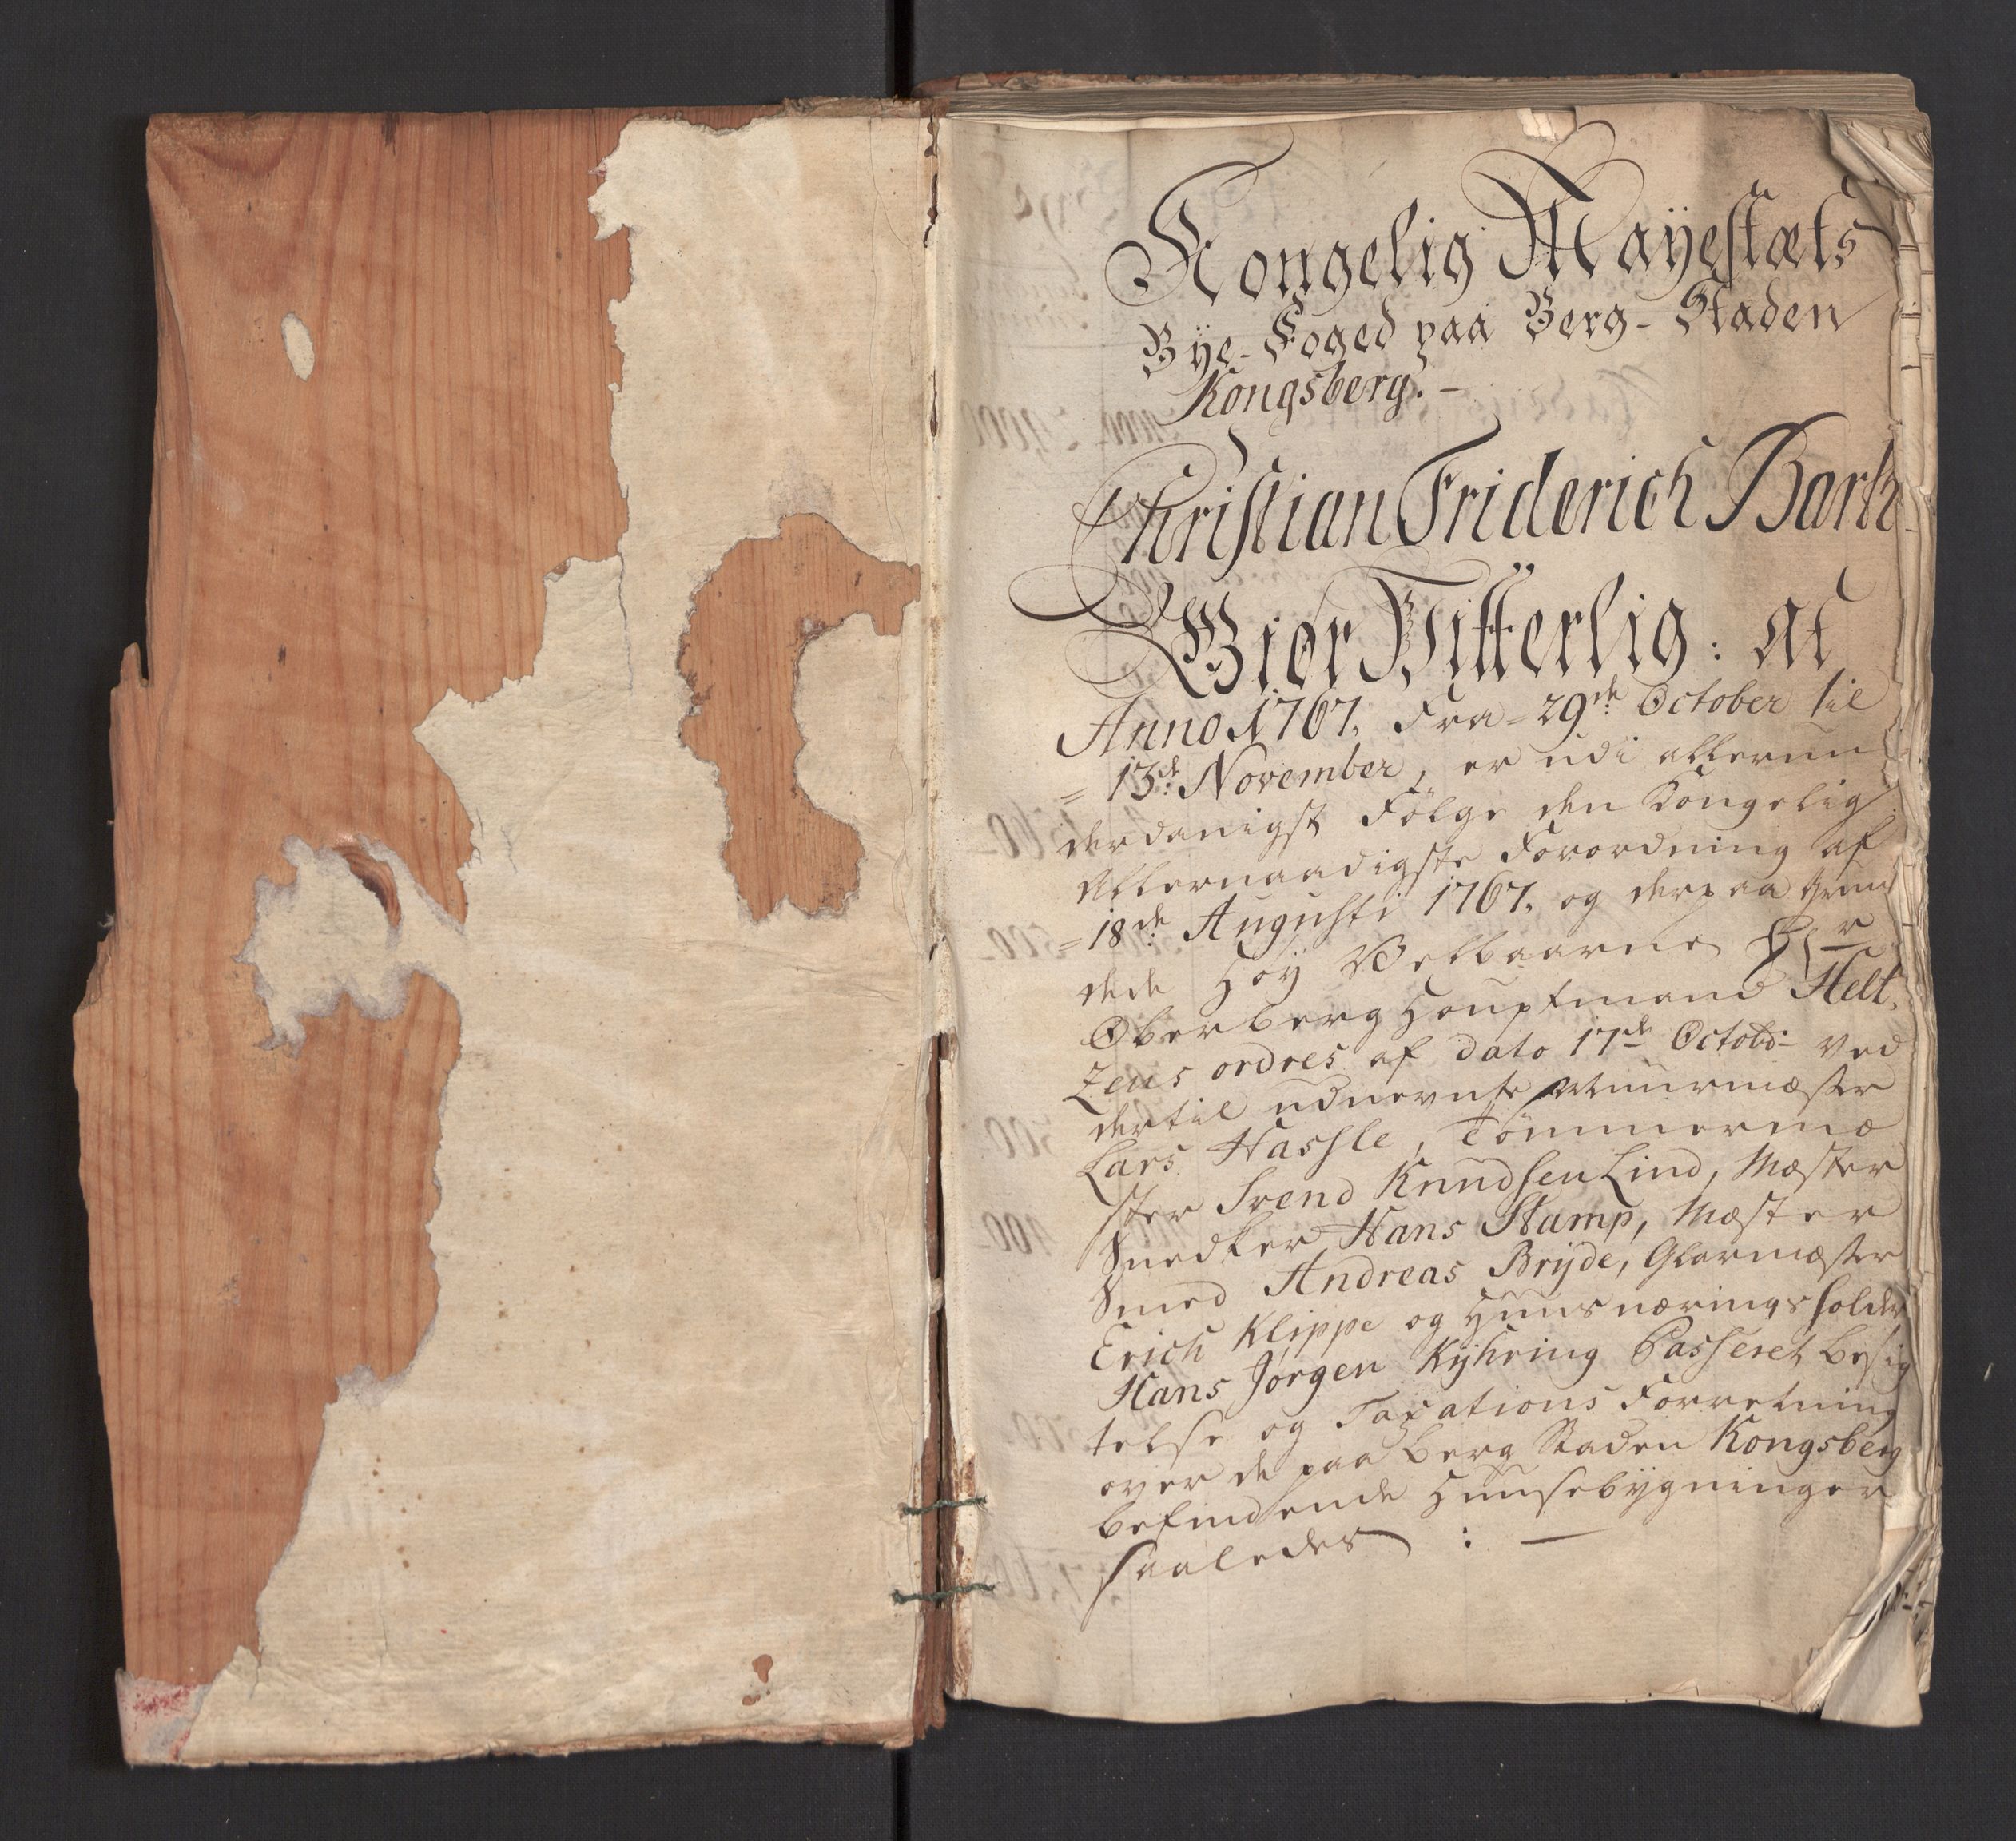 Kongelig Mayestæts
Bÿe-Foged paa Berg-Staden
Kongsberg. -
Christian Friderich Barth
Giör Vitterlig: at
Anno 1767, Fra = 29de October til
= 13de November, er udi allerun
derdanigst Følge den Kongelig
Allernaadigste Forordning af
= 18de Augusti 1767, og derpaa grun
dede Høÿ Velbaarne Hr
Oberberghouptmand Helt,
zens ordres af dato 17de Octobr ved
dertil udnevnte Muurmæster
Lars Hassle, Tömmermæ
ster Svend Knudsen Lind, Mæster
Snedker Hans Stamp, Mæster
Smed Andreas Brÿde, Glarmæster
Erich Klippe og Huusnæringsholder
Hans Jørgen Kÿhring Passeret besig
telse og Taxations Forretning
over de paa Berg Staden Kongsberg
befindende Huusebÿgninger
saaledes : —